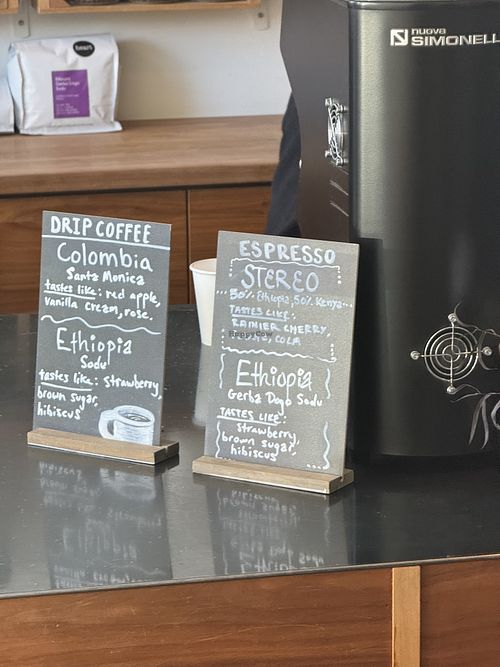 nuova
SIMONELLI
DRIP COFFEE
Colombia
Santa Monica
tastes like: red apple,
vanilla cream, rose.
Ethiopia
Sodu
tastes like: strawberry,
brown sugar,
hibiscus
ESPRESSO
STEREO
50% Ethiopia, 50% Kenya
TASTES LIKE:
RAINIER CHERRY,
COLA
HappyCow
Ethiopia
Gerba Dogo Sodu
TASTES LIKE:
strawberry,
brown sugar,
hibiscus